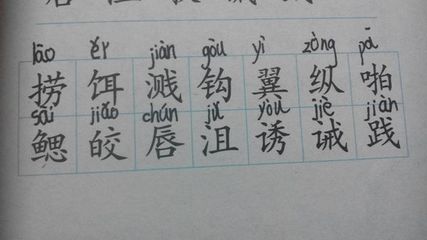 lāo ěr jiàn gōu yì zòng pā
捞 饵 溅 钩 翼 纵 啪
sāi jiǎo chún jǔ yòu jiè jiàn
鳃 皎 唇 沮 诱 诫 践